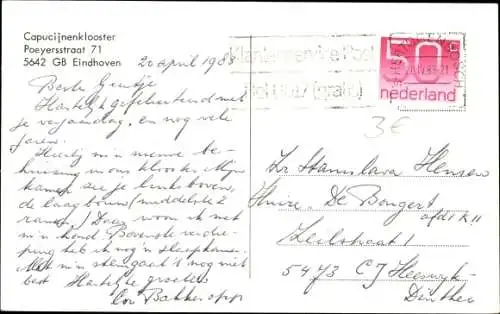 Capucijnenklooster
Poeyersstraat 71
5642 GB Eindhoven
20 april 1983
Beste Gentje
Hartelijk gefeliciteerd met
je verjaardag, en nog vele
jaren.
Heerlijk m'n nieuwe be-
huizing in ons klooster. Mijn
kamer zie je links boven,
de laagbouw (middelste 2
ramen). Daar woon ik met
m'n hond. Bovenste verdie-
ping heb ik nog 'n slaapkamer.
Met m'n stem gaat 't nog niet
best Hartelijke groeten
Cor Bakker o.f.m.
Klantenservice Post
50
nederland
3€
Zr Stanislava Hensen
Huize De Bongert
afd
Zeilstraat 1
5473 CJ Heeswijk-
Dinther